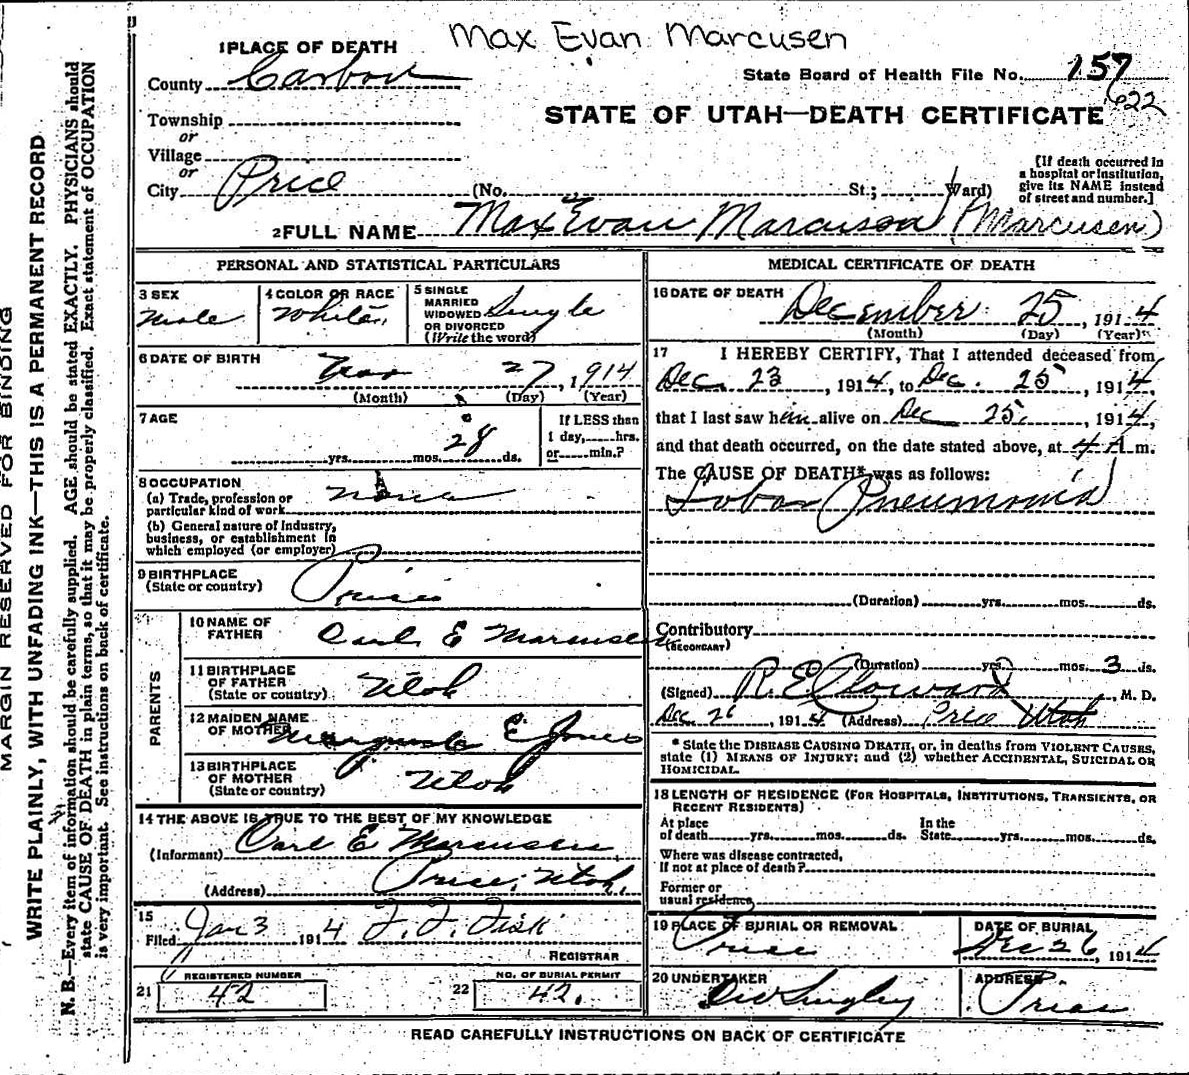 Max Evan Marcusen
1 PLACE OF DEATH
County Carbon
State Board of Health File No. 157
622
STATE OF UTAH—DEATH CERTIFICATE
Township
or
Village
or
City Price (No. St.; Ward)
[If death occurred in
a hospital or institution,
give its NAME instead
of street and number.]
2 FULL NAME Max Evan Marcuson (Marcusen)
PERSONAL AND STATISTICAL PARTICULARS
3 SEX
Male
4 COLOR OR RACE
White
5 SINGLE
MARRIED
WIDOWED
OR DIVORCED
(Write the word)
Single
6 DATE OF BIRTH
27, 1914
(Month) (Day) (Year)
7 AGE
yrs. mos. 28 ds.
If LESS than
1 day, hrs.
or min.?
8 OCCUPATION
(a) Trade, profession or
particular kind of work None
(b) General nature of industry,
business, or establishment in
which employed (or employer)
9 BIRTHPLACE
(State or country) Price
PARENTS
10 NAME OF
FATHER Carl E Marcusen
11 BIRTHPLACE
OF FATHER
(State or country) Utah
12 MAIDEN NAME
OF MOTHER E Jones
13 BIRTHPLACE
OF MOTHER
(State or country) Utah
14 THE ABOVE IS TRUE TO THE BEST OF MY KNOWLEDGE
(Informant) Carl E Marcusen
(Address) Price, Utah.
15
Filed Jan 3 1914 F. F. Fisk
REGISTRAR
REGISTERED NUMBER
21 42
NO. OF BURIAL PERMIT
22 42.
MEDICAL CERTIFICATE OF DEATH
16 DATE OF DEATH
December 25, 1914
(Month) (Day) (Year)
17 I HEREBY CERTIFY, That I attended deceased from
Dec. 23, 1914, to Dec. 25, 1914,
that I last saw him alive on Dec 25, 1914,
and that death occurred, on the date stated above, at 4 A m.
The CAUSE OF DEATH* was as follows:
Lobar Pneumonia
(Duration) yrs. mos. ds.
Contributory
(SECONDARY)
(Duration) yrs. mos. 3 ds.
(Signed) R. E. , M. D.
Dec 26, 1914 (Address) Price Utah
* State the DISEASE CAUSING DEATH, or, in deaths from VIOLENT CAUSES,
state (1) MEANS OF INJURY; and (2) whether ACCIDENTAL, SUICIDAL OR
HOMICIDAL.
18 LENGTH OF RESIDENCE (FOR HOSPITALS, INSTITUTIONS, TRANSIENTS, OR
RECENT RESIDENTS)
At place
of death yrs. mos. ds.
In the
State yrs. mos. ds.
Where was disease contracted,
If not at place of death?
Former or
usual residence
19 PLACE OF BURIAL OR REMOVAL
Price
DATE OF BURIAL
Dec 26, 1914
20 UNDERTAKER
ADDRESS
Price
READ CAREFULLY INSTRUCTIONS ON BACK OF CERTIFICATE
MARGIN RESERVED FOR BINDING
WRITE PLAINLY, WITH UNFADING INK—THIS IS A PERMANENT RECORD
N. B.—Every item of information should be carefully supplied. AGE should be stated EXACTLY. PHYSICIANS should
state CAUSE OF DEATH in plain terms, so that it may be properly classified. Exact statement of OCCUPATION
is very important. See instructions on back of certificate.